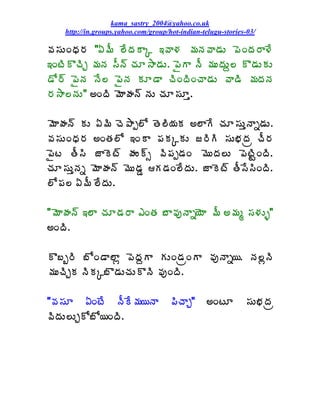 kama_sastry_2004@yahoo.co.uk
http://in.groups.yahoo.com/group/hot-indian-telugu-stories-03/
వసుంధర "ఏమీ లేదకాక్క ఇవాళ మనవాడు పెందరాళే
ఇంటికొచ్చి మన సీన్ చూసాడు. పైగా నీ ముద్దుల కొడుకు
డోర్ పైన సేల పైన కూడా చిందించాడు వాడి మదన
రసాలను" అంది మోహన్ ను చూసూ్త.
మోహన్ కు ఏమి చెప్పాలో తెలియక అలాగే చూస్తున్నాడు.
వసుంధర అంతలో ఇంకా పక్కకు జరిగి సుభద్ర చీర
పైట తీసి జాకెట్ హుక్స్ విప్పడం మొదలు పెట్టింది.
చూస్తున్న మోహన్ మొడ్డ ఆగడంలేదు. జాకెట్ తీసేసింది.
లోపల ఏమీ లేదు.
"మోహన్ ఇలా చూడరా ఎంత బావున్నాయో మీ అమ్మ సళ్ళు"
అంది.
కొబ్బరి బోండాల్లా పెద్దగా గుండ్రంగా వున్నాయి. నల్లని
ముచ్చిక నిక్కబొడుచుకొని వుంది.
"వసూ ఏంటే నీకేమయినా పిచ్చా" అంటూ సుభద్ర
విదులుచ్చుకోబోయింది.